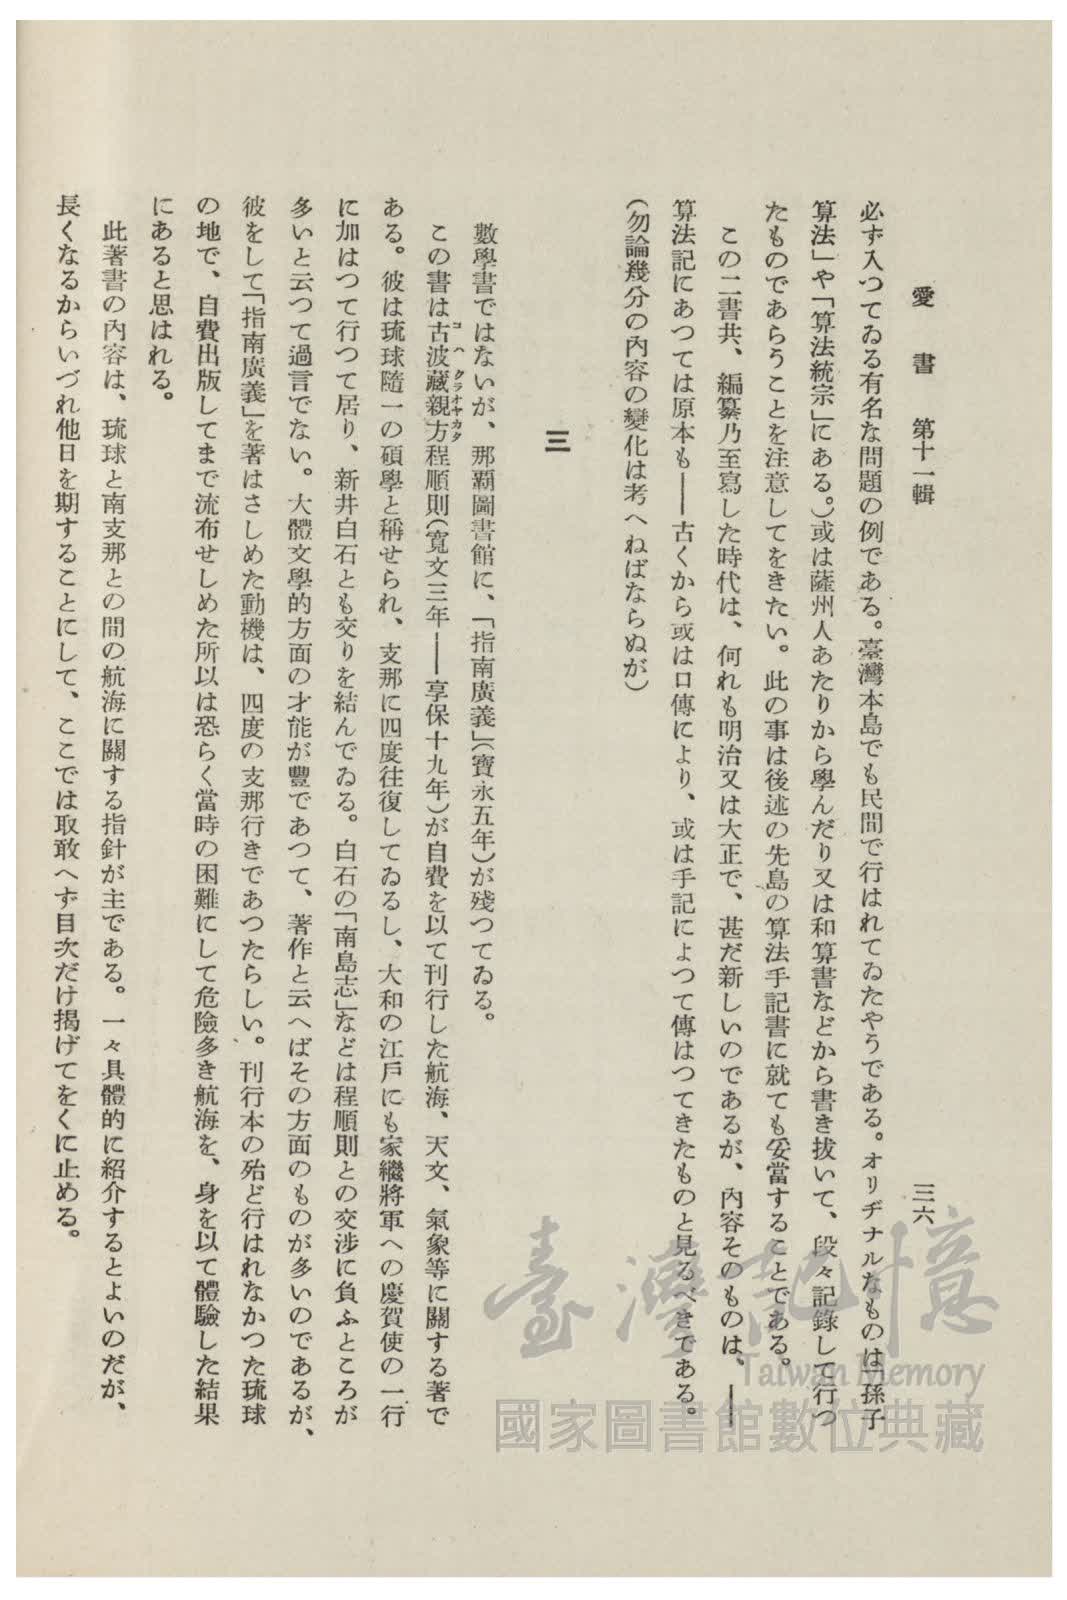 愛書 第十一輯 三六
必ず入つてゐる有名な問題の例である。臺灣本島でも民間で行はれてゐたやうである。オリヂナルなものは「孫子
算法」や「算法統宗」にある。)或は薩州人あたりから學んだり又は和算書などから書き拔いて、段々記錄して行つ
たものであらうことを注意してをきたい。此の事は後述の先島の算法手記書に就ても妥當することである。
この二書共、編纂乃至寫した時代は、何れも明治又は大正で、甚だ新しいのであるが、內容そのものは、――
算法記にあつては原本も――古くから或は口傳により、或は手記によつて傳はつてきたものと見るべきである。
(勿論幾分の內容の變化は考へねばならぬが)
三
數學書ではないが、那覇圖書館に、「指南廣義」(寶永五年)が殘つてゐる。
この書は古波藏親方程順則(寬文三年――享保十九年)が自費を以て刊行した航海、天文、氣象等に關する著で
コハクラオヤカタ
ある。彼は琉球隨一の碩學と稱せられ、支那に四度往復してゐるし、大和の江戶にも家繼將軍への慶賀使の一行
に加はつて行つて居り、新井白石とも交りを結んでゐる。白石の「南島志」などは程順則との交涉に負ふところが
多いと云つて過言でない。大體文學的方面の才能が豐であつて、著作と云へばその方面のものが多いのであるが、
彼をして「指南廣義」を著はさしめた動機は、四度の支那行きであつたらしい。刊行本の殆ど行はれなかつた琉球
の地で、自費出版してまで流布せしめた所以は恐らく當時の困難にして危險多き航海を、身を以て體驗した結果
にあると思はれる。
此著書の內容は、琉球と南支那との間の航海に關する指針が主である。一々具體的に紹介するとよいのだが、
長くなるからいづれ他日を期することにして、ここでは取敢へず目次だけ揭げてをくに止める。
臺灣記憶
Taiwan Memory
國家圖書館數位典藏